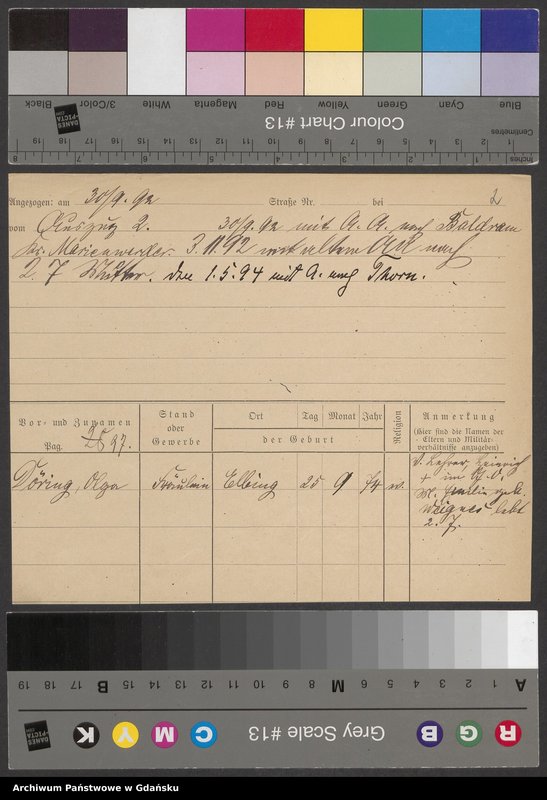 Blue Cyan Green Yellow Red Magenta White 3/Color Black
Colour Chart #13
DANES
-PICTA
.COM
Centimetres
1 2 3 4 5 6 7 8 9 10 11 12 13 14 15 16 17 18 19
Inches 1 2 3 4 5 6 7 8
Angezogen: am 30/9.92 Straße Nr. bei 2
vom Auszug 2. 30/9.92 mit A. A. nach Baldram
Kr. Marienwerder. 3.11.92 mit altem nach
2. 7 Mutter. den 1.5.94 mit A. nach Thorn.
Vor- und Zunamen
Pag. 97.
Stand
oder
Gewerbe
Ort Tag Monat Jahr
der Geburt
Religion
Anmerkung
(Hier sind die Namen der
Eltern und Militär-
verhältnisse anzugeben)
Döring, Olga Fräulein Elbing 25 9 74 ev.
V. Lehrer, Heinrich
+ im
M. Emilie geb.
lebt
2. 7.
A 1 2 3 4 5 6 M 8 9 10 11 12 13 14 15 B 17 18 19
R G B Grey Scale #13 C M Y K
DANES
-PICTA
.COM
Archiwum Państwowe w Gdańsku